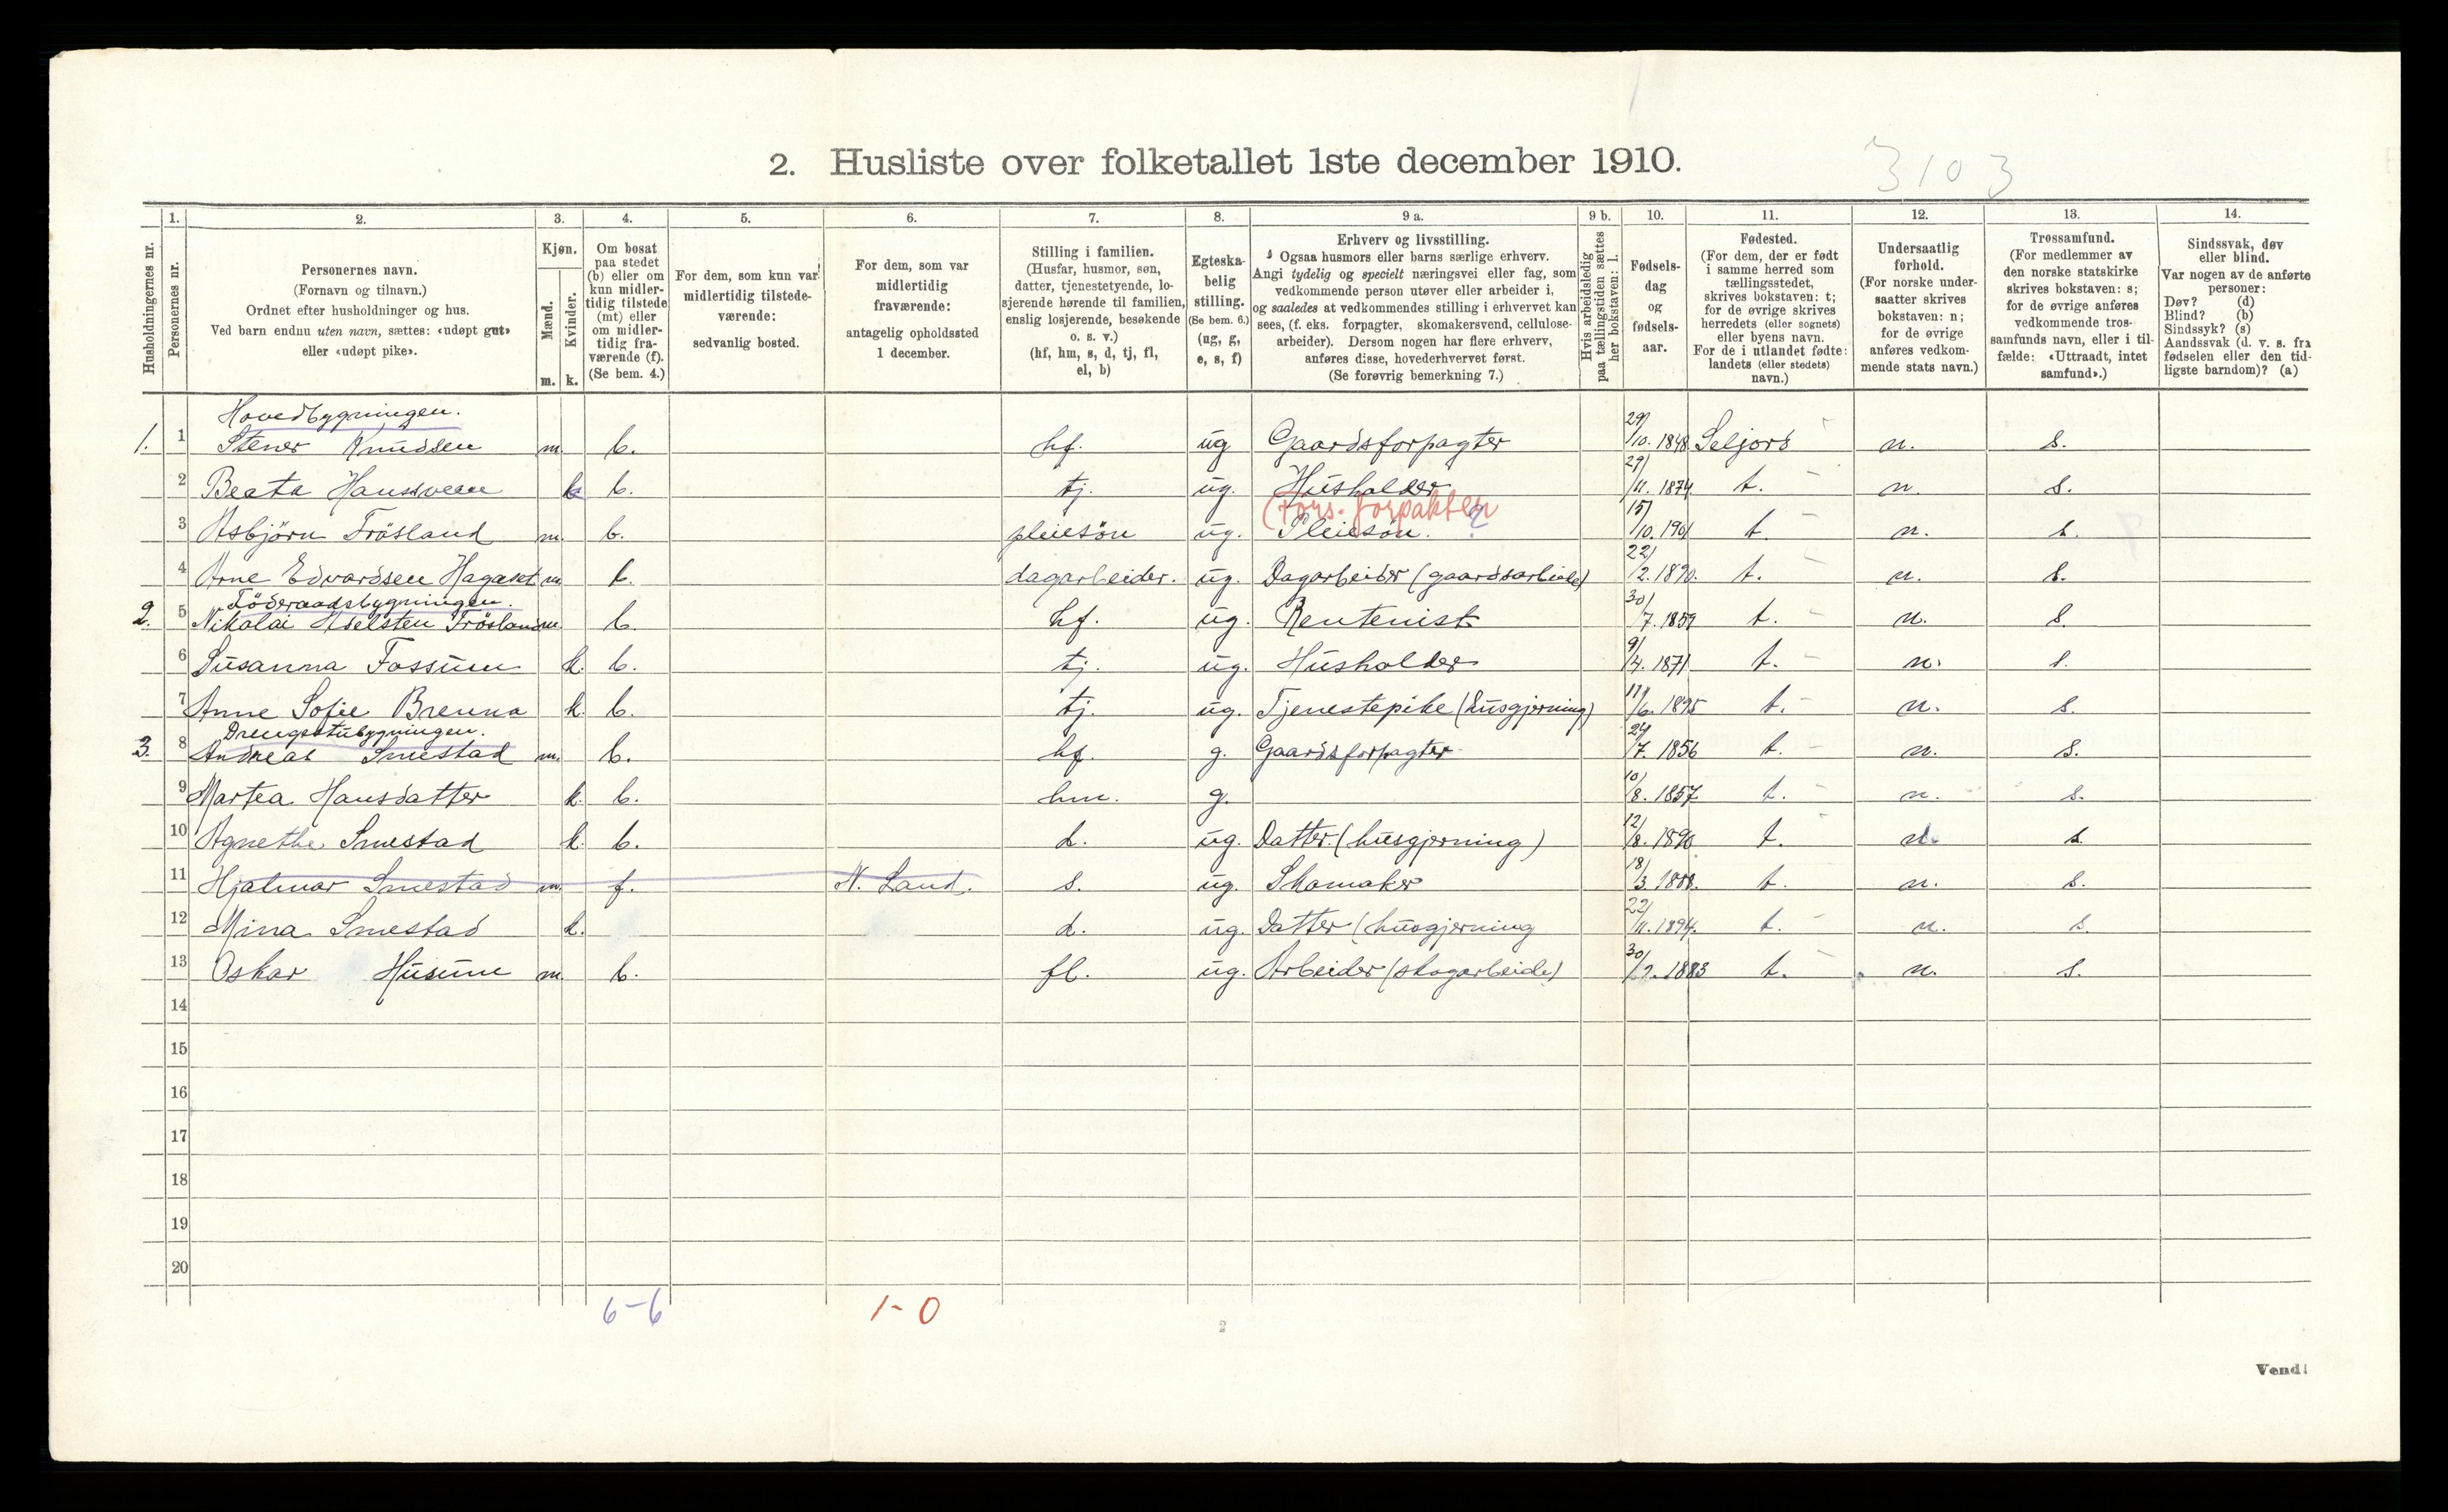 2. Husliste over folketallet 1ste december 1910.
3103
1. 2. 3. 4. 5. 6. 7. 8. 9 a. 9 b. 10. 11. 12. 13. 14.
Husholdningernes nr.
Personernes nr.
Personernes navn.
(Fornavn og tilnavn.)
Ordnet efter husholdninger og hus.
Ved barn endnu uten navn, sættes: «udøpt gut»
eller «udøpt pike».
Kjøn.
Mænd.
Kvinder.
m. k.
Om bosat
paa stedet
(b) eller om
kun midler-
tidig tilstede
(mt) eller
om midler-
tidig fra-
værende (f).
(Se bem. 4.)
For dem, som kun var
midlertidig tilstede-
værende:
sedvanlig bosted.
For dem, som var
midlertidig
fraværende:
antagelig opholdssted
1 december.
Stilling i familien.
(Husfar, husmor, søn,
datter, tjenestetyende, lo-
sjerende hørende til familien,
enslig losjerende, besøkende
o. s. v.)
(hf, hm, s, d, tj, fl,
el, b)
Egteska-
belig
stilling.
(Se bem. 6.)
(ug, g,
e, s, f)
Erhverv og livsstilling.
Ogsaa husmors eller barns særlige erhverv.
Angi tydelig og specielt næringsvei eller fag, som
vedkommende person utøver eller arbeider i,
og saaledes at vedkommendes stilling i erhvervet kan
sees, (f. eks. forpagter, skomakersvend, cellulose-
arbeider). Dersom nogen har flere erhverv,
anføres disse, hovederhvervet først.
(Se forøvrig bemerkning 7.)
Hvis arbeidsledig
paa tællingstiden sættes
her bokstaven: l.
Fødsels-
dag
og
fødsels-
aar.
Fødested.
(For dem, der er født
i samme herred som
tællingsstedet,
skrives bokstaven: t;
for de øvrige skrives
herredets (eller sognets)
eller byens navn.
For de i utlandet fødte:
landets (eller stedets)
navn.)
Undersaatlig
forhold.
(For norske under-
saatter skrives
bokstaven: n;
for de øvrige
anføres vedkom-
mende stats navn.)
Trossamfund.
(For medlemmer av
den norske statskirke
skrives bokstaven: s;
for de øvrige anføres
vedkommende tros-
samfunds navn, eller i til-
fælde: «Uttraadt, intet
samfund».)
Sindssvak, døv
eller blind.
Var nogen av de anførte
personer:
Døv? (d)
Blind? (b)
Sindssyk? (s)
Aandssvak (d. v. s. fra
fødselen eller den tid-
ligste barndom)? (a)
Hovedbygningen.
1. 1 Stener Knudsen m. b. hf. ug Gaardsforpagter 29/10. 1848 Seljord n. s.
2 Beata Hansdveen k b. tj. ug. Husholder 29/11. 1874 t. n. s.
(Fors. forpakter
3 Asbjörn Frösland m. b. pleiesön ug. Pleiesön. ? 15/10. 1901 t. n. s.
4 Arne Edvardsen Hagaset m. b. dagarbeider. ug. Dagarbeider (gaardsarbeide) 22/2. 1890. t. n. s.
Föderaadsbygningen.
2. 5 Nikolai Frösland m b. hf. ug. Rentenist 30/7. 1859 t. n. s.
6 Susanna Fossum k. b. tj. ug. Husholder 9/4. 1871 t. n. s.
7 Anne Sofie Brenna k. b. tj. ug. Tjenestepike (husgjerning) 11/6. 1895 t. n. s.
Drengestubygningen.
3. 8 Andreas Smestad m. b. hf. g. Gaardsforpagter 24/7. 1856 t. n. s.
9 Martea Hansdatter k. b. hm. g. 10/8. 1857 t. n. s.
10 Agnethe Smestad k. b. d. ug. Datter (husgjerning) 12/8. 1890 t. n. s.
11 Hjalmar Smestad m. f. N. Land. s. ug. Skomaker 18/3. 1888. t. n. s.
12 Mina Smestad k. d. ug. Datter (husgjerning 22/11. 1894. t. n. s.
13 Oskar Husum m. b. fl. ug. Arbeider (skogarbeide) 30/12. 1883 t. n. s.
14
15
16
17
18
19
20
6-6 1-0
2
Vend!